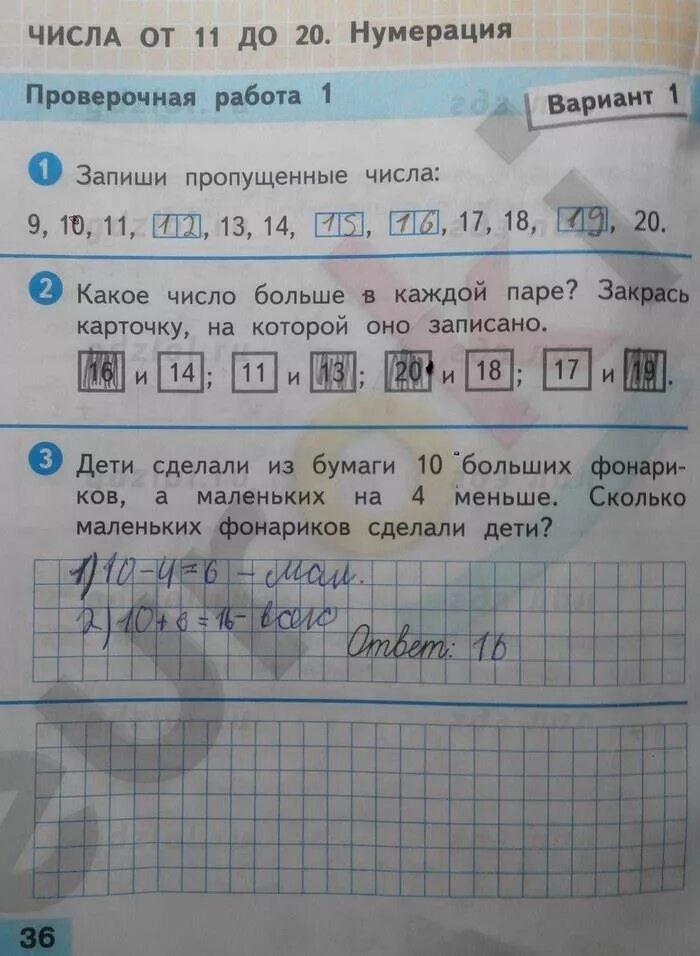 ЧИСЛА ОТ 11 ДО 20. Нумерация
Проверочная работа 1
Вариант 1
1 Запиши пропущенные числа:
9, 10, 11, 12, 13, 14, 15, 16, 17, 18, 19, 20.
2 Какое число больше в каждой паре? Закрась
карточку, на которой оно записано.
16 и 14; 11 и 13; 20 и 18; 17 и 19.
3 Дети сделали из бумаги 10 больших фонари-
ков, а маленьких на 4 меньше. Сколько
маленьких фонариков сделали дети?
1) 10-4=6 - мал.
2) 10+6=16- всего
Ответ: 16
36